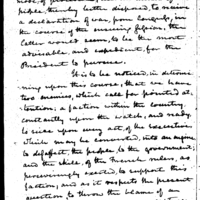 people, thereby better disposed, to receive
a declaration of war, from Congress, in
the course of the ensuing session, the
latter would seem, to be the most
advisable, and expedient, for the
President to pursue.
It is to be noticed, in determi-
ning upon this course, that we have
two enemies, which call for pointed at-
tention; a faction within the country,
constantly upon the watch, and ready,
to seize upon every act, of the executive
which may be converted, into an engine
to disaffect, the people, to the government;
and the skill, of the French rulers, as
perseveringly exerted, to support this
faction; and as it respects the present
question, to throw the blame of an